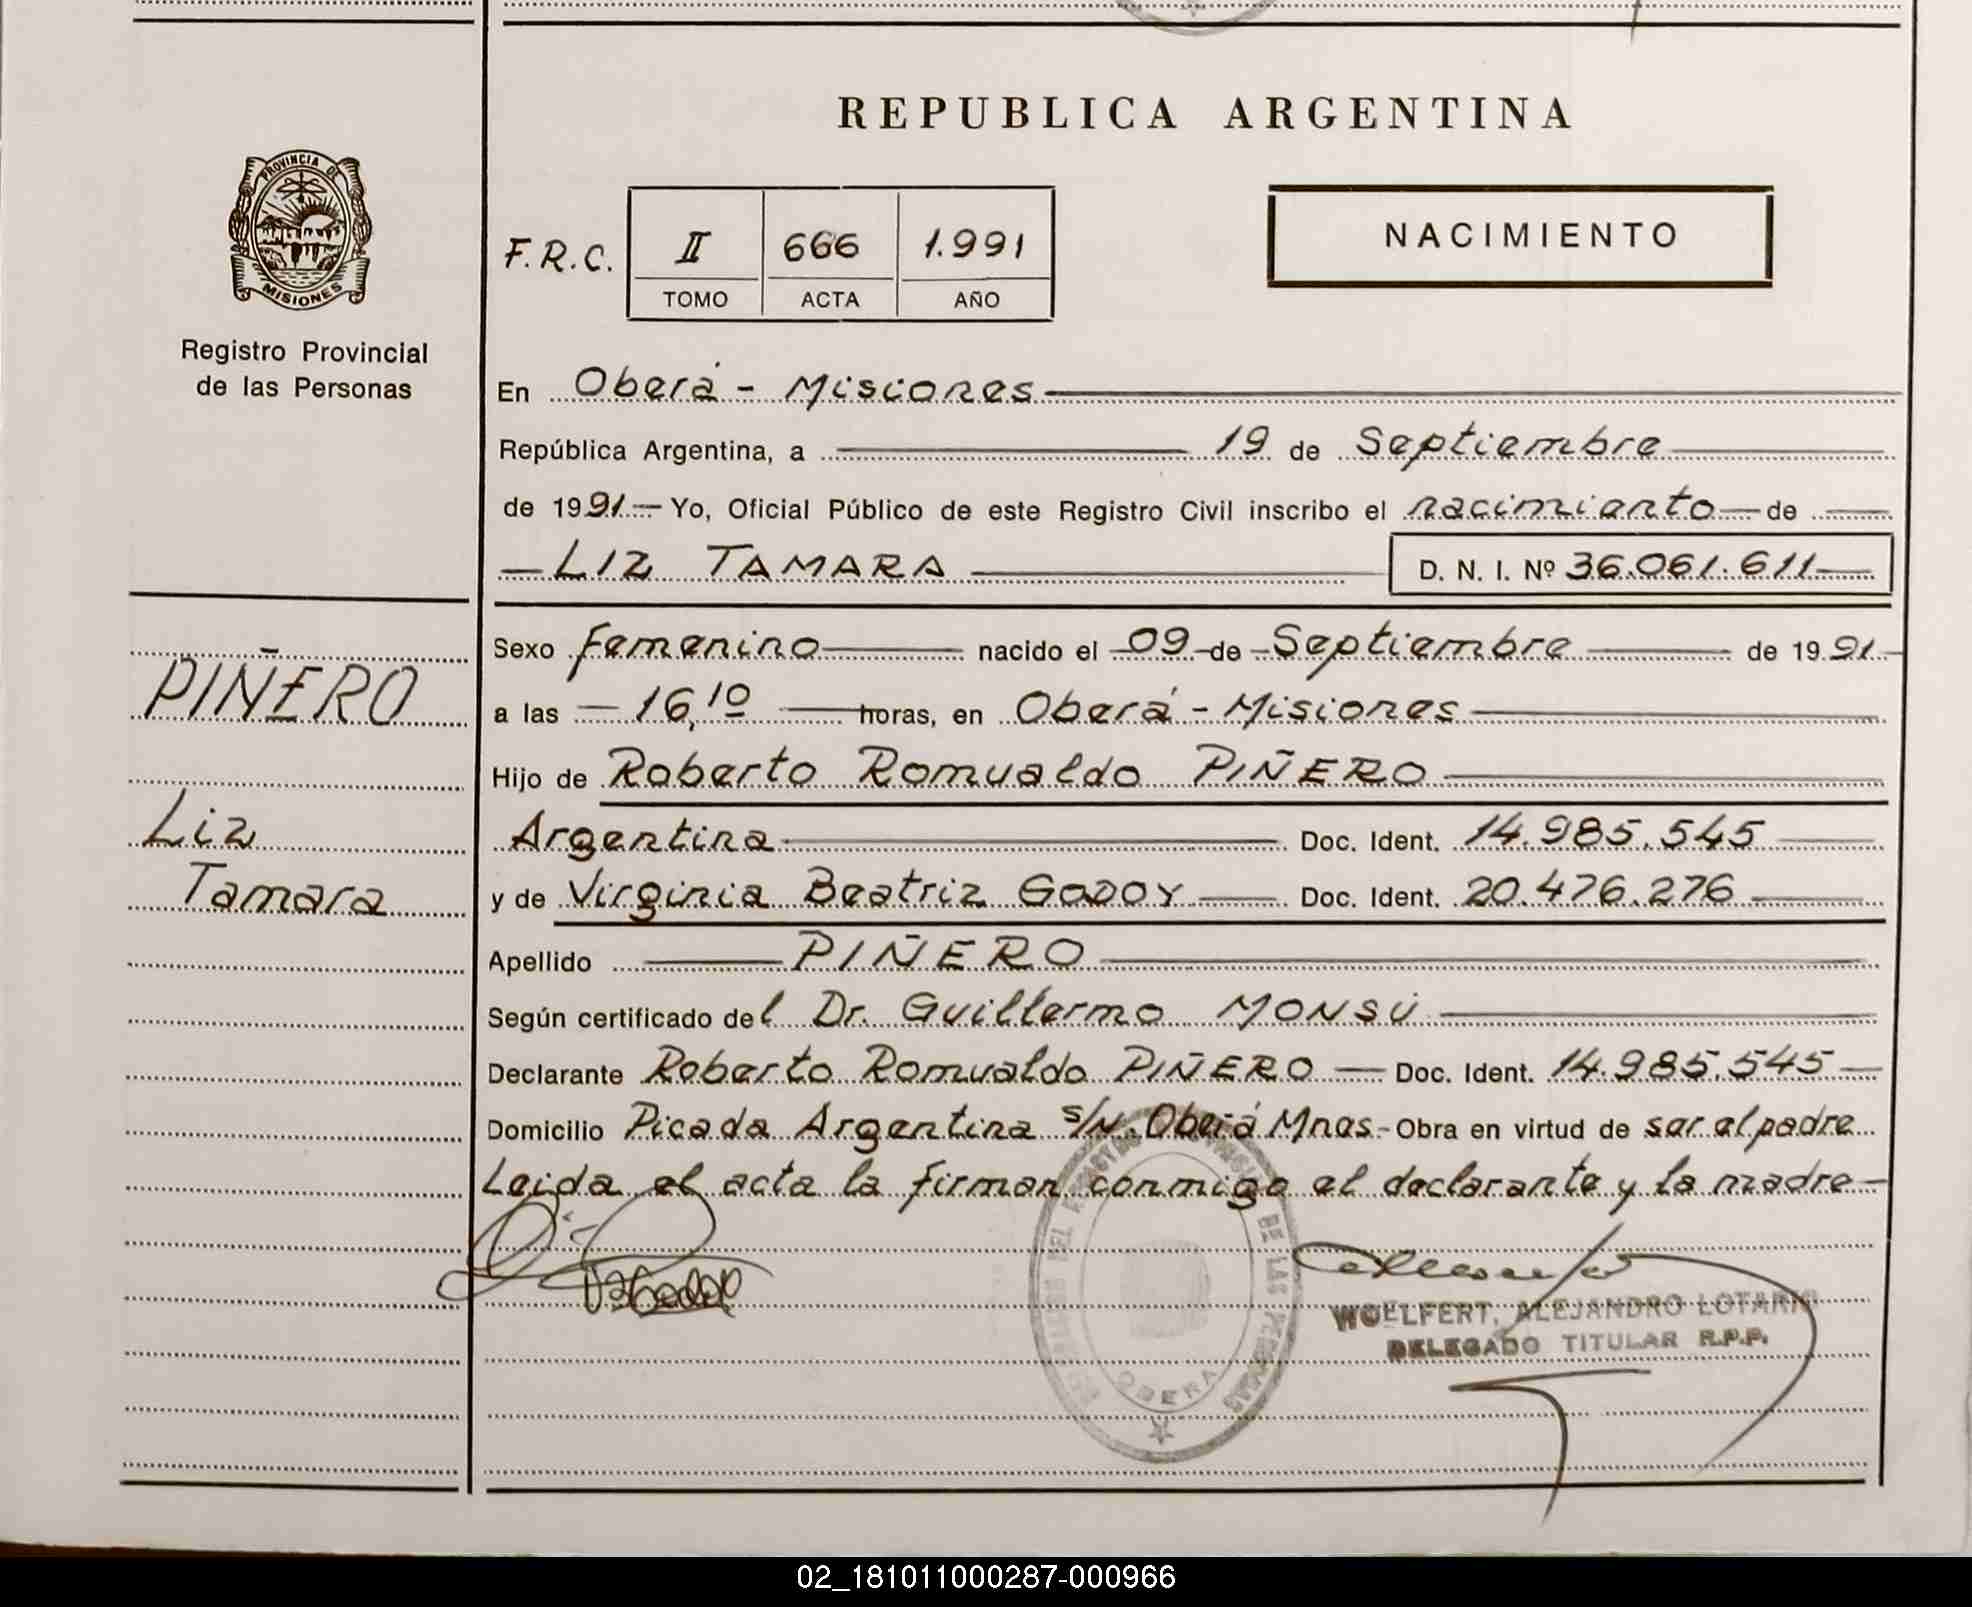 REPUBLICA ARGENTINA
PROVINCIA DE
MISIONES
Registro Provincial
de las Personas
F.R.C. II 666 1.991
TOMO ACTA AÑO
NACIMIENTO
En Oberá - Misiones
República Argentina, a 19 de Septiembre
de 1991 - Yo, Oficial Público de este Registro Civil inscribo el nacimiento de
LIZ TAMARA D. N. I. Nº 36.061.611
Sexo femenino nacido el 09 de Septiembre de 1991
a las 16,10 horas, en Oberá - Misiones
Hijo de Roberto Romualdo PIÑERO
Argentina Doc. Ident. 14.985.545
y de Virginia Beatriz GODOY Doc. Ident. 20.476.276
Apellido PIÑERO
Según certificado del Dr. Guillermo MONSÚ
Declarante Roberto Romualdo PIÑERO Doc. Ident. 14.985.545
Domicilio Picada Argentina s/N Oberá Mnes - Obra en virtud de ser el padre
Leida el acta la firman conmigo el declarante y la madre
PIÑERO
Liz
Tamara
DE LAS PERSONAS
OBERA
WOELFERT, ALEJANDRO LOTARIO
DELEGADO TITULAR R.P.P.
02_181011000287-000966